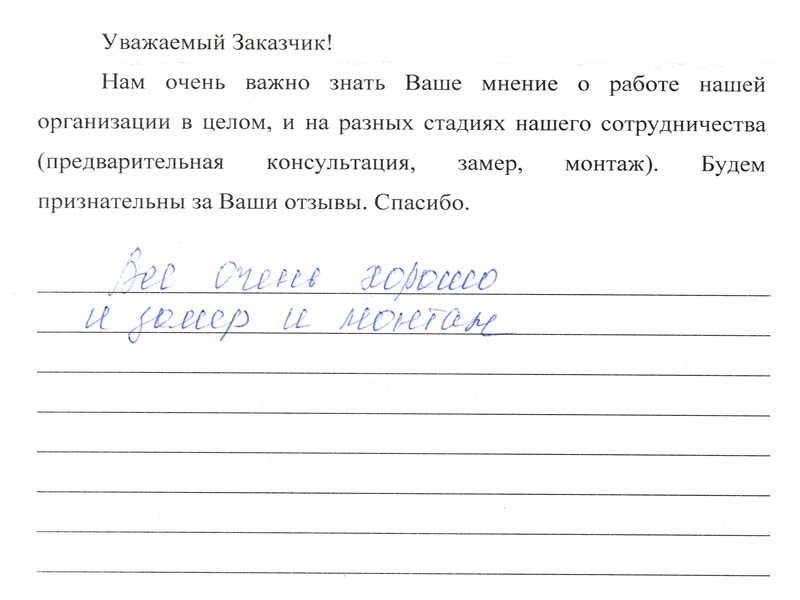 Уважаемый Заказчик!
Нам очень важно знать Ваше мнение о работе нашей
организации в целом, и на разных стадиях нашего сотрудничества
(предварительная консультация, замер, монтаж). Будем
признательны за Ваши отзывы. Спасибо.
Все очень хорошо
и замер и монтаж